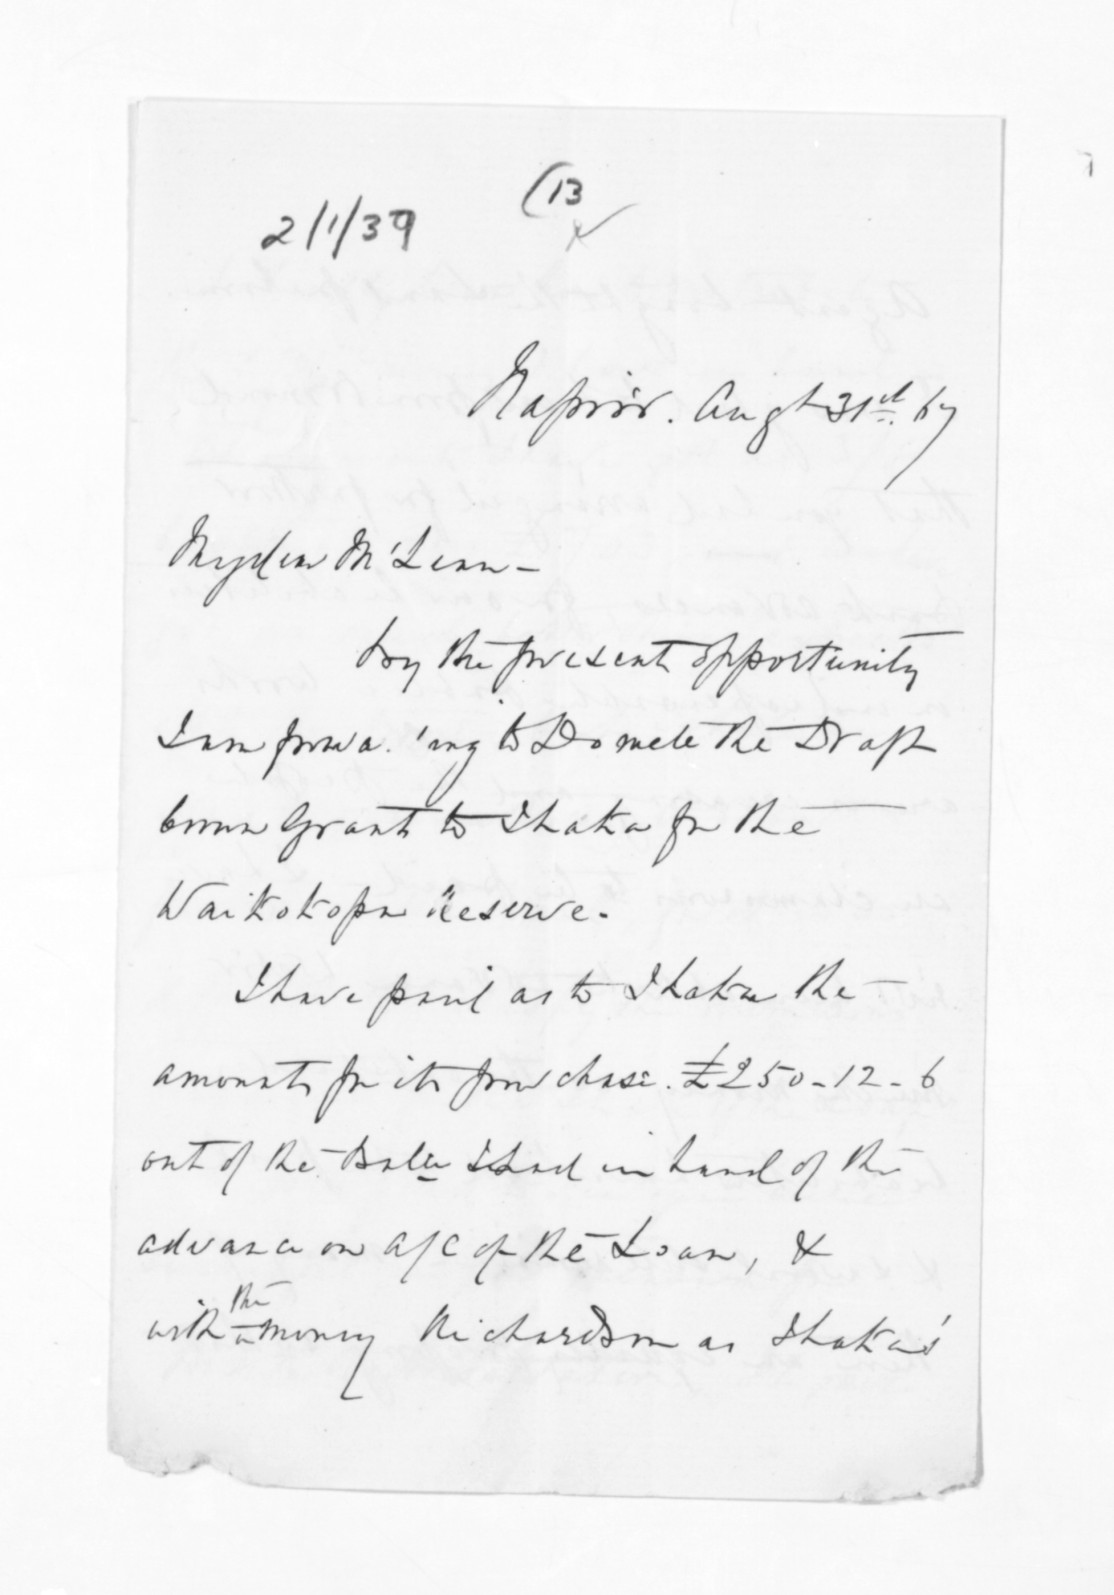 (13
2/1/39
Napier. Augt 31st. 67
My dear McLean -
by the present opportunity
I am forwa. 'ing to Domett the Draft
Crown Grant to Ihaka for the
Waikokopu Reserve.
I have paid as to Ihaka the
amount for its purchase. £250-12-6
out of the Balce I had in hand of the
advance on a/c of the Loan, &
with the money Richardson as Ihaka's